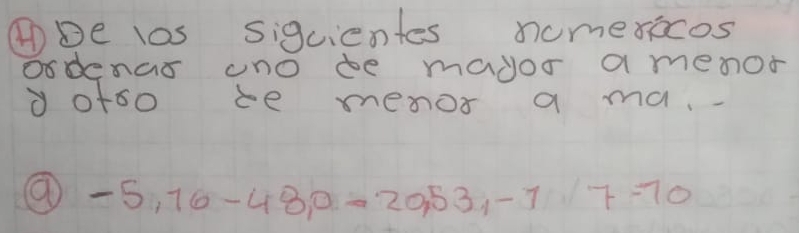 4) De los siguientes numericos
ordenar uno de mayor a menor
y otro de menor a ma..
a) -5,16-48,0-20,53,-1 7-10